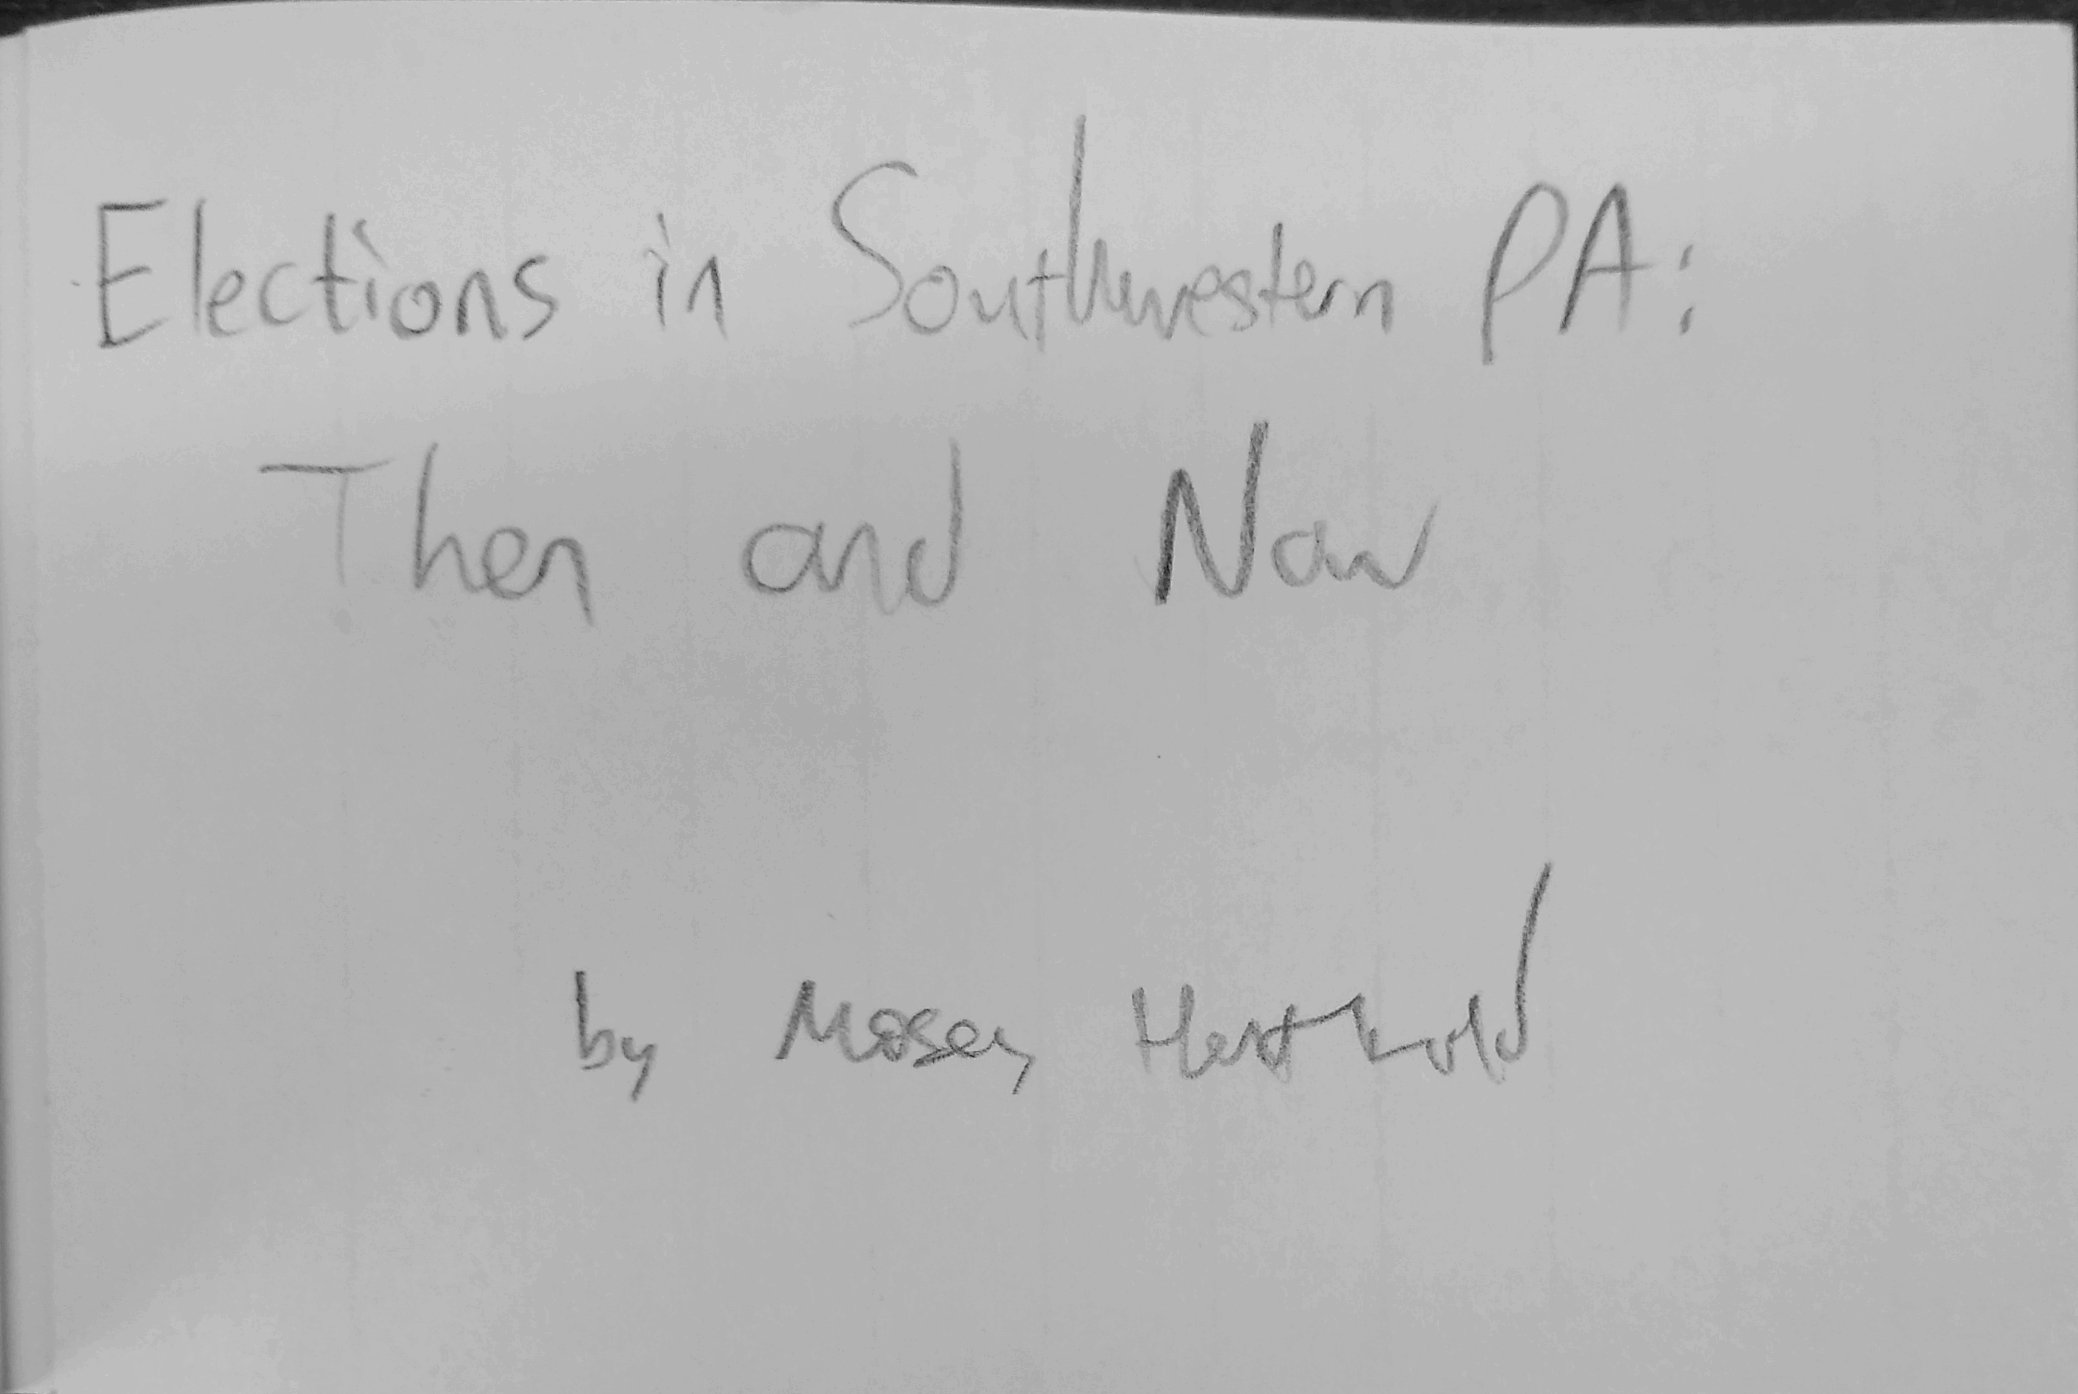 Elections in Southwestern PA:
Then and Now
by Mosey